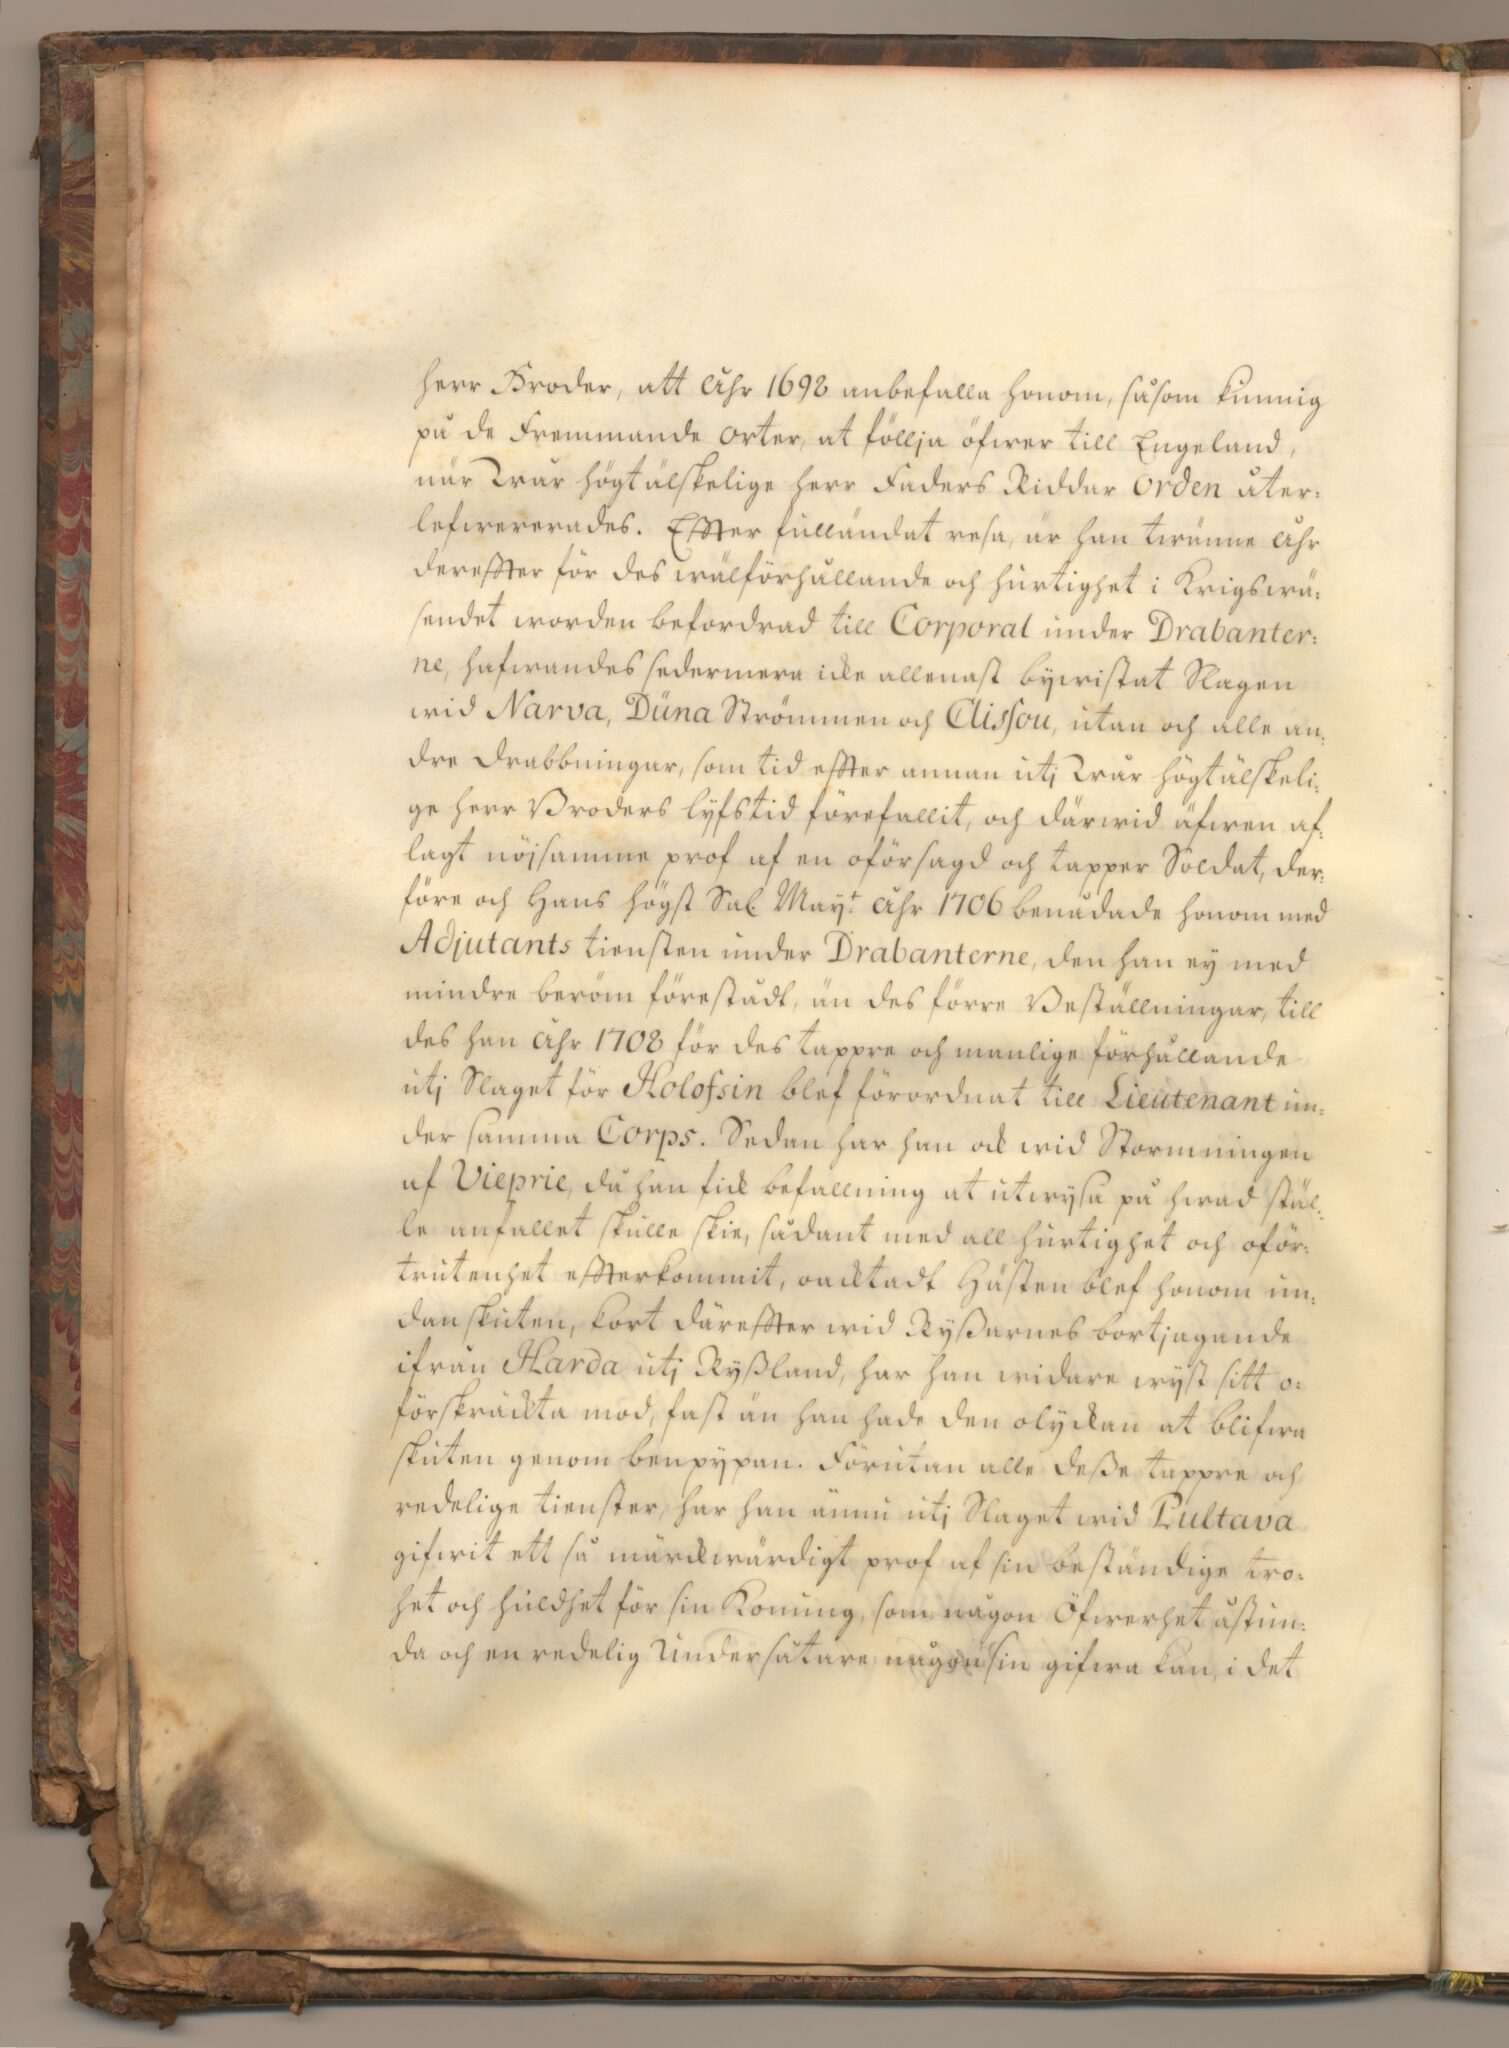 herr Broder, att åhr 1698 anbefalla honom, såsom kunnig
på de Fremmande orter, at föllja öfwer till Engeland,
när Wår högtälskelige herr Faders Riddar orden åter:
lefwererades. Effter fulländat resa, är han twänne åhr
dereffter för des wälförhållande och hurtighet i Krigswä:
sendet worden befordrad till Corporal under Drabanter:
ne, hafwandes sedermera icke allenast bywistat Slagen
wid Narva, Düna Strömmen och Clissou, utan och alle an:
dre drabbningar, som tid effter annan utj Wår högtälskeli:
ge herr Broders lyfstid förefallit, och därwid äfwen af:
lagt nöjsamme prof af en oförsagd och tapper Soldat, der:
före och Hans högst Sal May:t åhr 1706 benådade honom med
Adjutants tiensten under Drabanterne, den han ey med
mindre beröm förestådt, än des förre Beställningar, till
des han åhr 1708 för des tappre och manlige förhållande
utj Slaget för Holofsin blef förordnat till Lieutenant un:
der samma Corps. Sedan har han ock wid Stormningen
af Vieprie, då han fick befallning at utwysa på hwad stäl:
le anfallet skulle skie, sådant med all hurtighet och oför:
trutenhet effterkommit, oacktadt Hästen blef honom un:
dan skuten, kort däreffter wid Ryßarnes bortjagande
ifrån Harda utj Ryßland, har han widare wyst sitt o:
förskräckta mod, fast än han hade den olyckan at blifwa
skuten genom benpypan. Förutan alle deße tappre och
redelige tienster, har han ännu utj Slaget wid Pultava
gifwit ett så märckwärdigt prof af sin beständige tro:
het och huldhet för sin Konung, som någon Öfwerhet åstun:
da och en redelig Undersåtare någonsin gifwa kan, i det